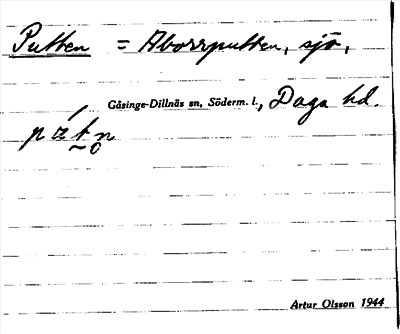 Putten = Aborrputten, sjö,
Gåsinge-Dillnäs sn, Söderm. l., Daga hd.
Artur Olsson 1944